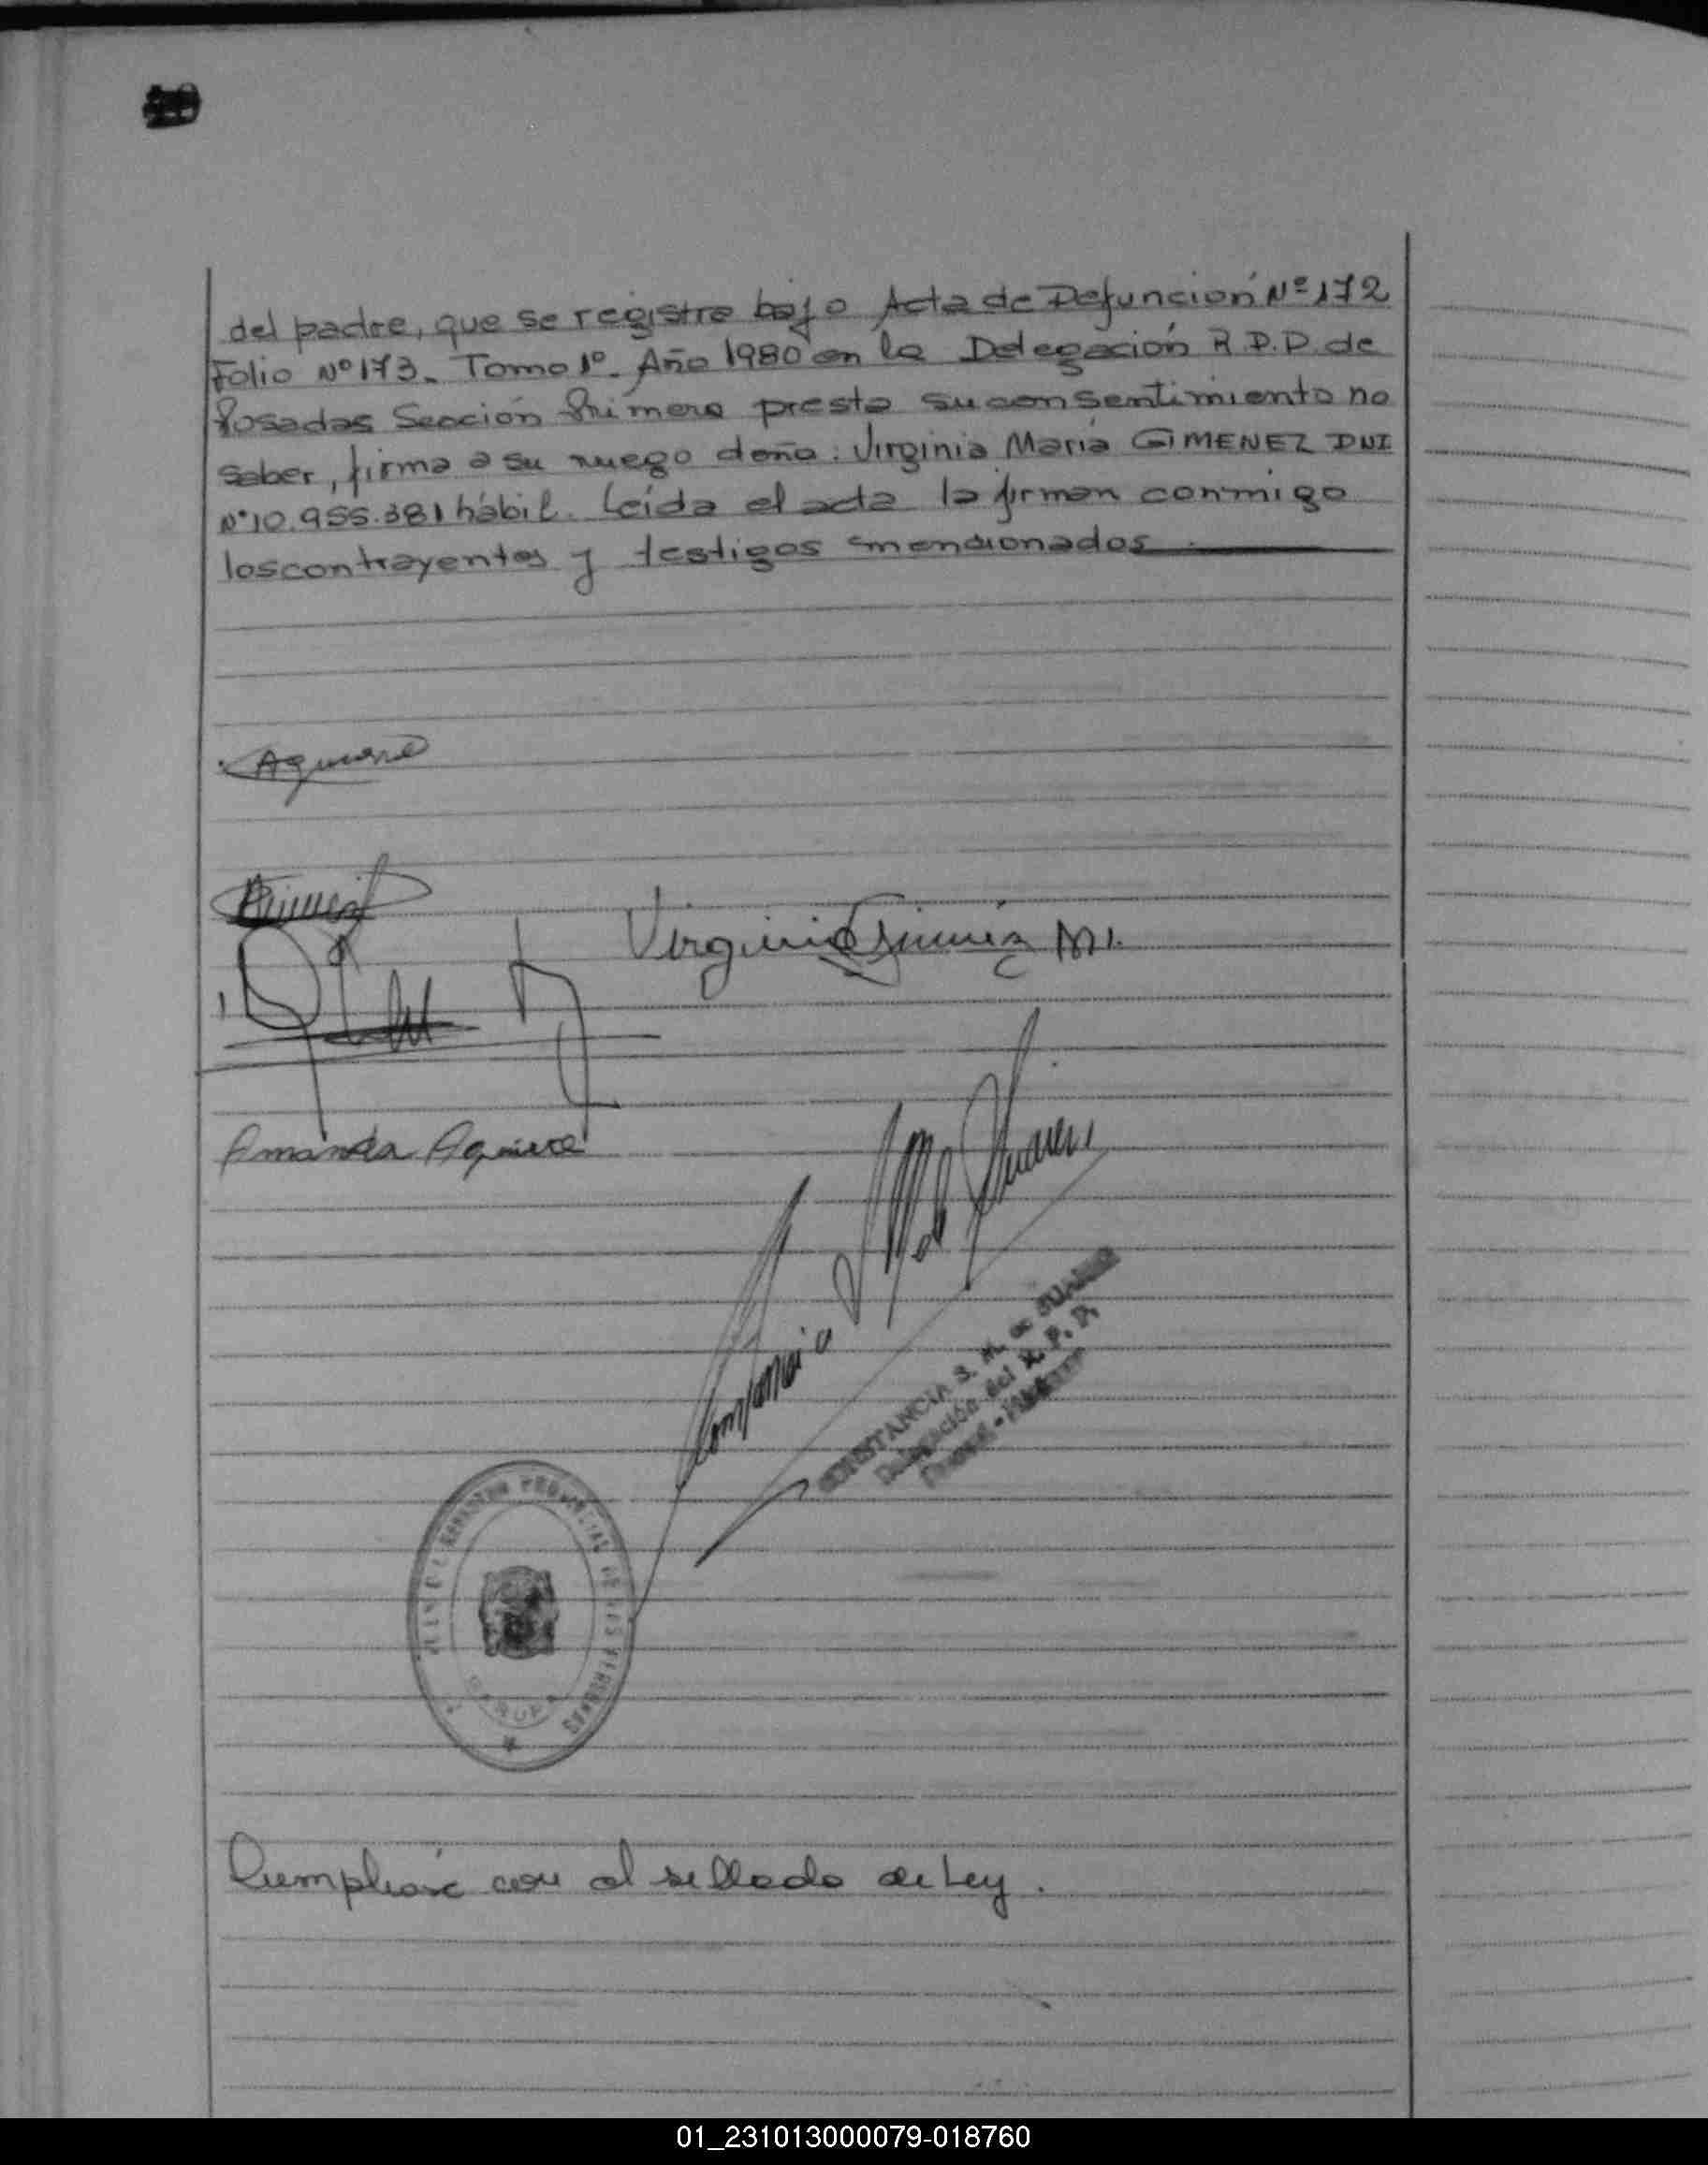 del padre, que se registra bajo Acta de Defunción Nº 172
Folio Nº 173. Tomo 1º. Año 1980 en la Delegación R.P.P. de
Posadas Sección Primera presta su consentimiento no
saber, firma a su ruego doña: Virginia María GIMENEZ DNI
Nº 10.955.381 hábil. Leída el acta la firman conmigo
los contrayentes y testigos mencionados.
Aguirre
Virginia Gimenez M.
Amanda Aguirre
CONSTANCIA S. M. de JUAREZ
Delegación del R. P. P.
REGISTRO PROVINCIAL DE LAS PERSONAS
Cumpliose con el sellado de Ley.
01_231013000079-018760